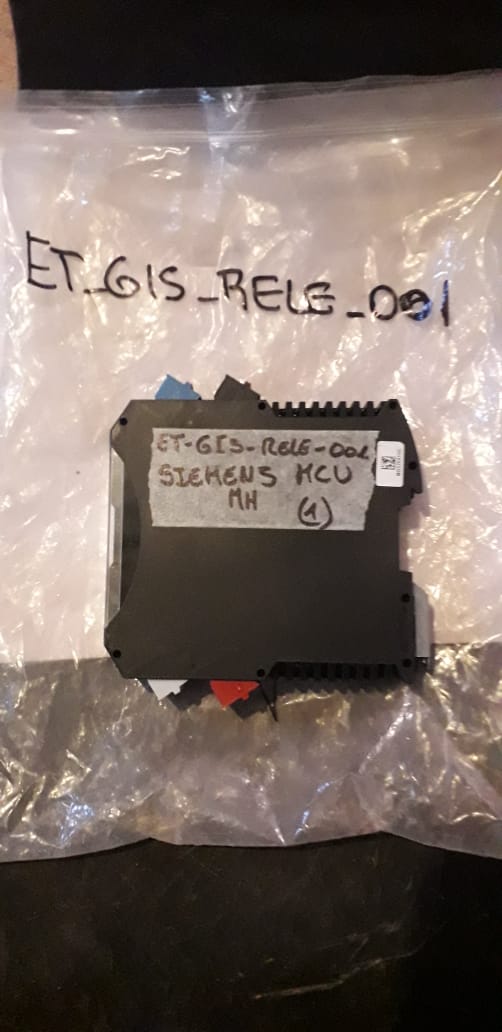 ET_GIS_RELE_001
ET-GIS-RELE-001
SIEMENS MCU
MH (1)